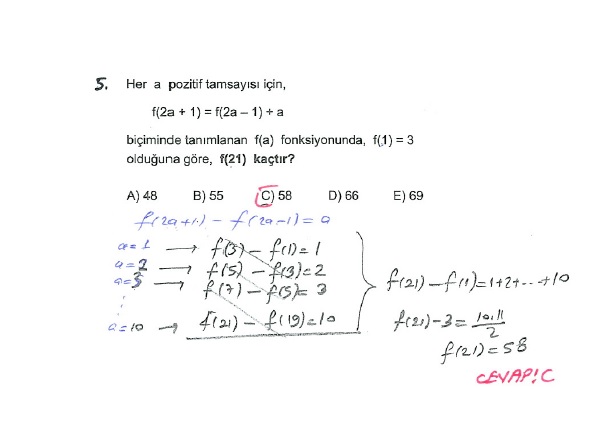 5. Her a pozitif tamsayısı için,
f(2a + 1) = f(2a – 1) + a
biçiminde tanımlanan f(a) fonksiyonunda, f(1) = 3
olduğuna göre, f(21) kaçtır?
A) 48 B) 55 C) 58 D) 66 E) 69
f(2a+1) - f(2a-1) = a
a=1 → f(3) - f(1) = 1
a=2 → f(5) - f(3) = 2
a=3 → f(7) - f(5) = 3
⋮
a=10 → f(21) - f(19) = 10
f(21) - f(1) = 1+2+...+10
f(21) - 3 = 10.11/2
f(21) = 58
CEVAP: C